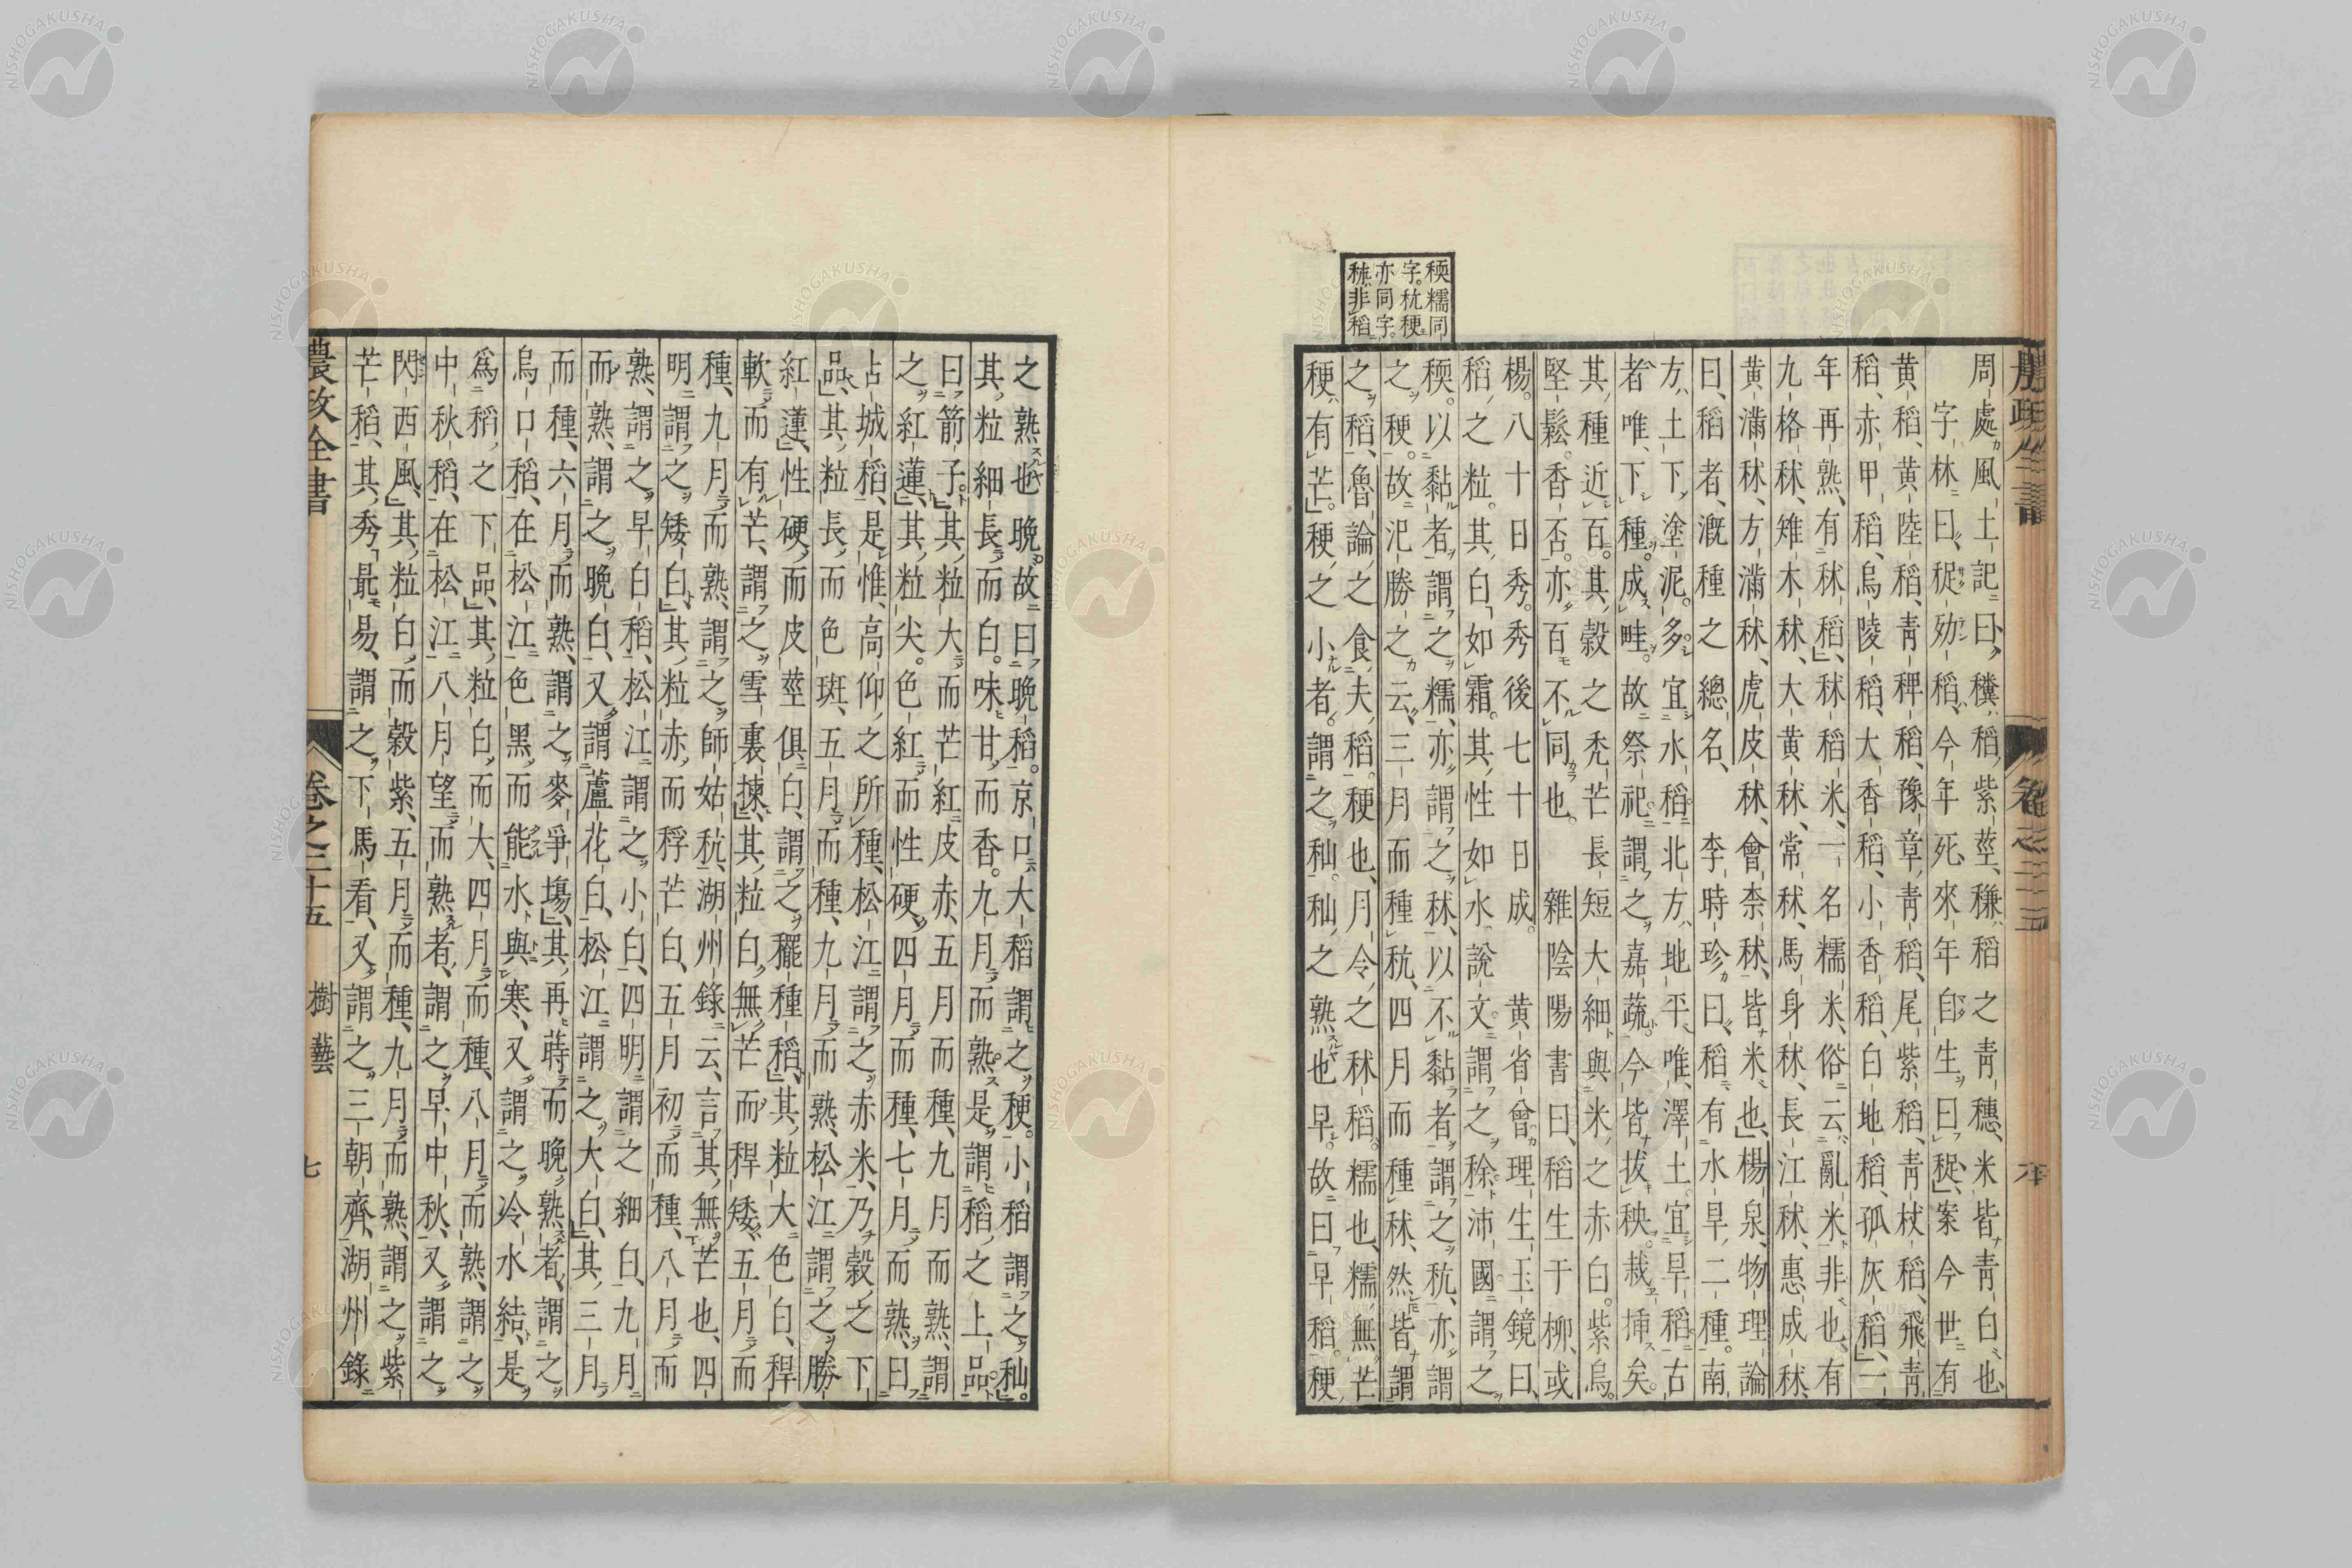 稬糯同
字。秔稉
亦同字。
秫非稻
周處風土記曰、穬稻、紫莖、稴稻之青穗、米皆青白也、
字林曰、稻、今年死、來年自生曰、案今世有
黃稻、黃陸稻、青稗稻、豫章青稻、尾紫稻、青杖稻、飛青
稻、赤甲稻、烏陵稻、大香稻、小香稻、白地稻、孤灰稻、一
年再熟、有秫稻、秫稻米、一名糯米、俗云亂米、非也、有
九格秫、雉木秫、大黃秫、常秫、馬身秫、長江秫、惠成秫、
黃滿秫、方滿秫、虎皮秫、會柰秫、皆米也、楊泉物理論
曰、稻者、漑種之總名、李時珍曰、稻有水旱二種。南
方土下塗泥。多宜水稻。北方地平、唯澤土宜旱稻。古
者唯下種。成畦。故祭祀謂之嘉蔬。今皆拔秧。栽揷矣。
其種近百。其穀之禿芒長短大細、與米之赤白。紫烏。
堅鬆。香否。亦百不同也。雜陰陽書曰、稻生于柳、或
楊。八十日秀。秀後七十日成。黃省曾理生玉鏡曰、
稻之粒。其白如霜。其性如水。說文謂之稌。沛國謂之
稬。以黏者謂之糯、亦謂之秫、以不黏者謂之秔、亦謂
之稉。故氾勝之云、三月而種秔、四月而種秫、然皆謂
之稻、魯論之食夫稻。稉也、月令之秫稻。糯也、糯無芒
稉有芒。稉之小者。謂之秈。秈之熟也早。故曰早稻。稉
之熟也晩。故曰晩稻。京口大稻謂之稉。小稻謂之秈。
其粒細長而白。味甘而香。九月而熟。是謂稻之上品。
曰箭子。其粒大而芒紅皮赤、五月而種、九月而熟、謂
之紅蓮、其粒尖。色紅而性硬、四月而種、七月而熟、曰
占城稻、是惟高仰之所種、松江謂之赤米、乃穀之下
品、其粒長而色斑、五月而種、九月而熟、松江謂之勝
紅蓮、性硬而皮莖俱白、謂之䆉種稻、其粒大色白、稈
軟而有芒、謂之雪裏揀、其粒白、無芒而稈矮、五月而
種、九月而熟、謂之師姑秔、湖州錄云、言其無芒也、四
明謂之矮白、其粒赤而稃芒白、五月初而種、八月而
熟、謂之早白稻、松江謂之小白、四明謂之細白、九月
而熟、謂之晩白、又謂蘆花白、松江謂之大白、其三月
而種、六月而熟、謂之麥爭場、其再蒔而晩熟者、謂之
烏口稻、在松江色黑、而能水與寒、又謂之冷水結、是
爲稻之下品、其粒白、而大、四月而種、八月而熟、謂之
中秋稻、在松江八月望而熟者、謂之早中秋、又謂之
閃西風、其粒白、而穀紫、五月而種、九月而熟、謂之紫
芒稻、其秀最易、謂之下馬看、又謂之三朝齊、湖州錄
農政全書 卷之二十五 樹藝 七